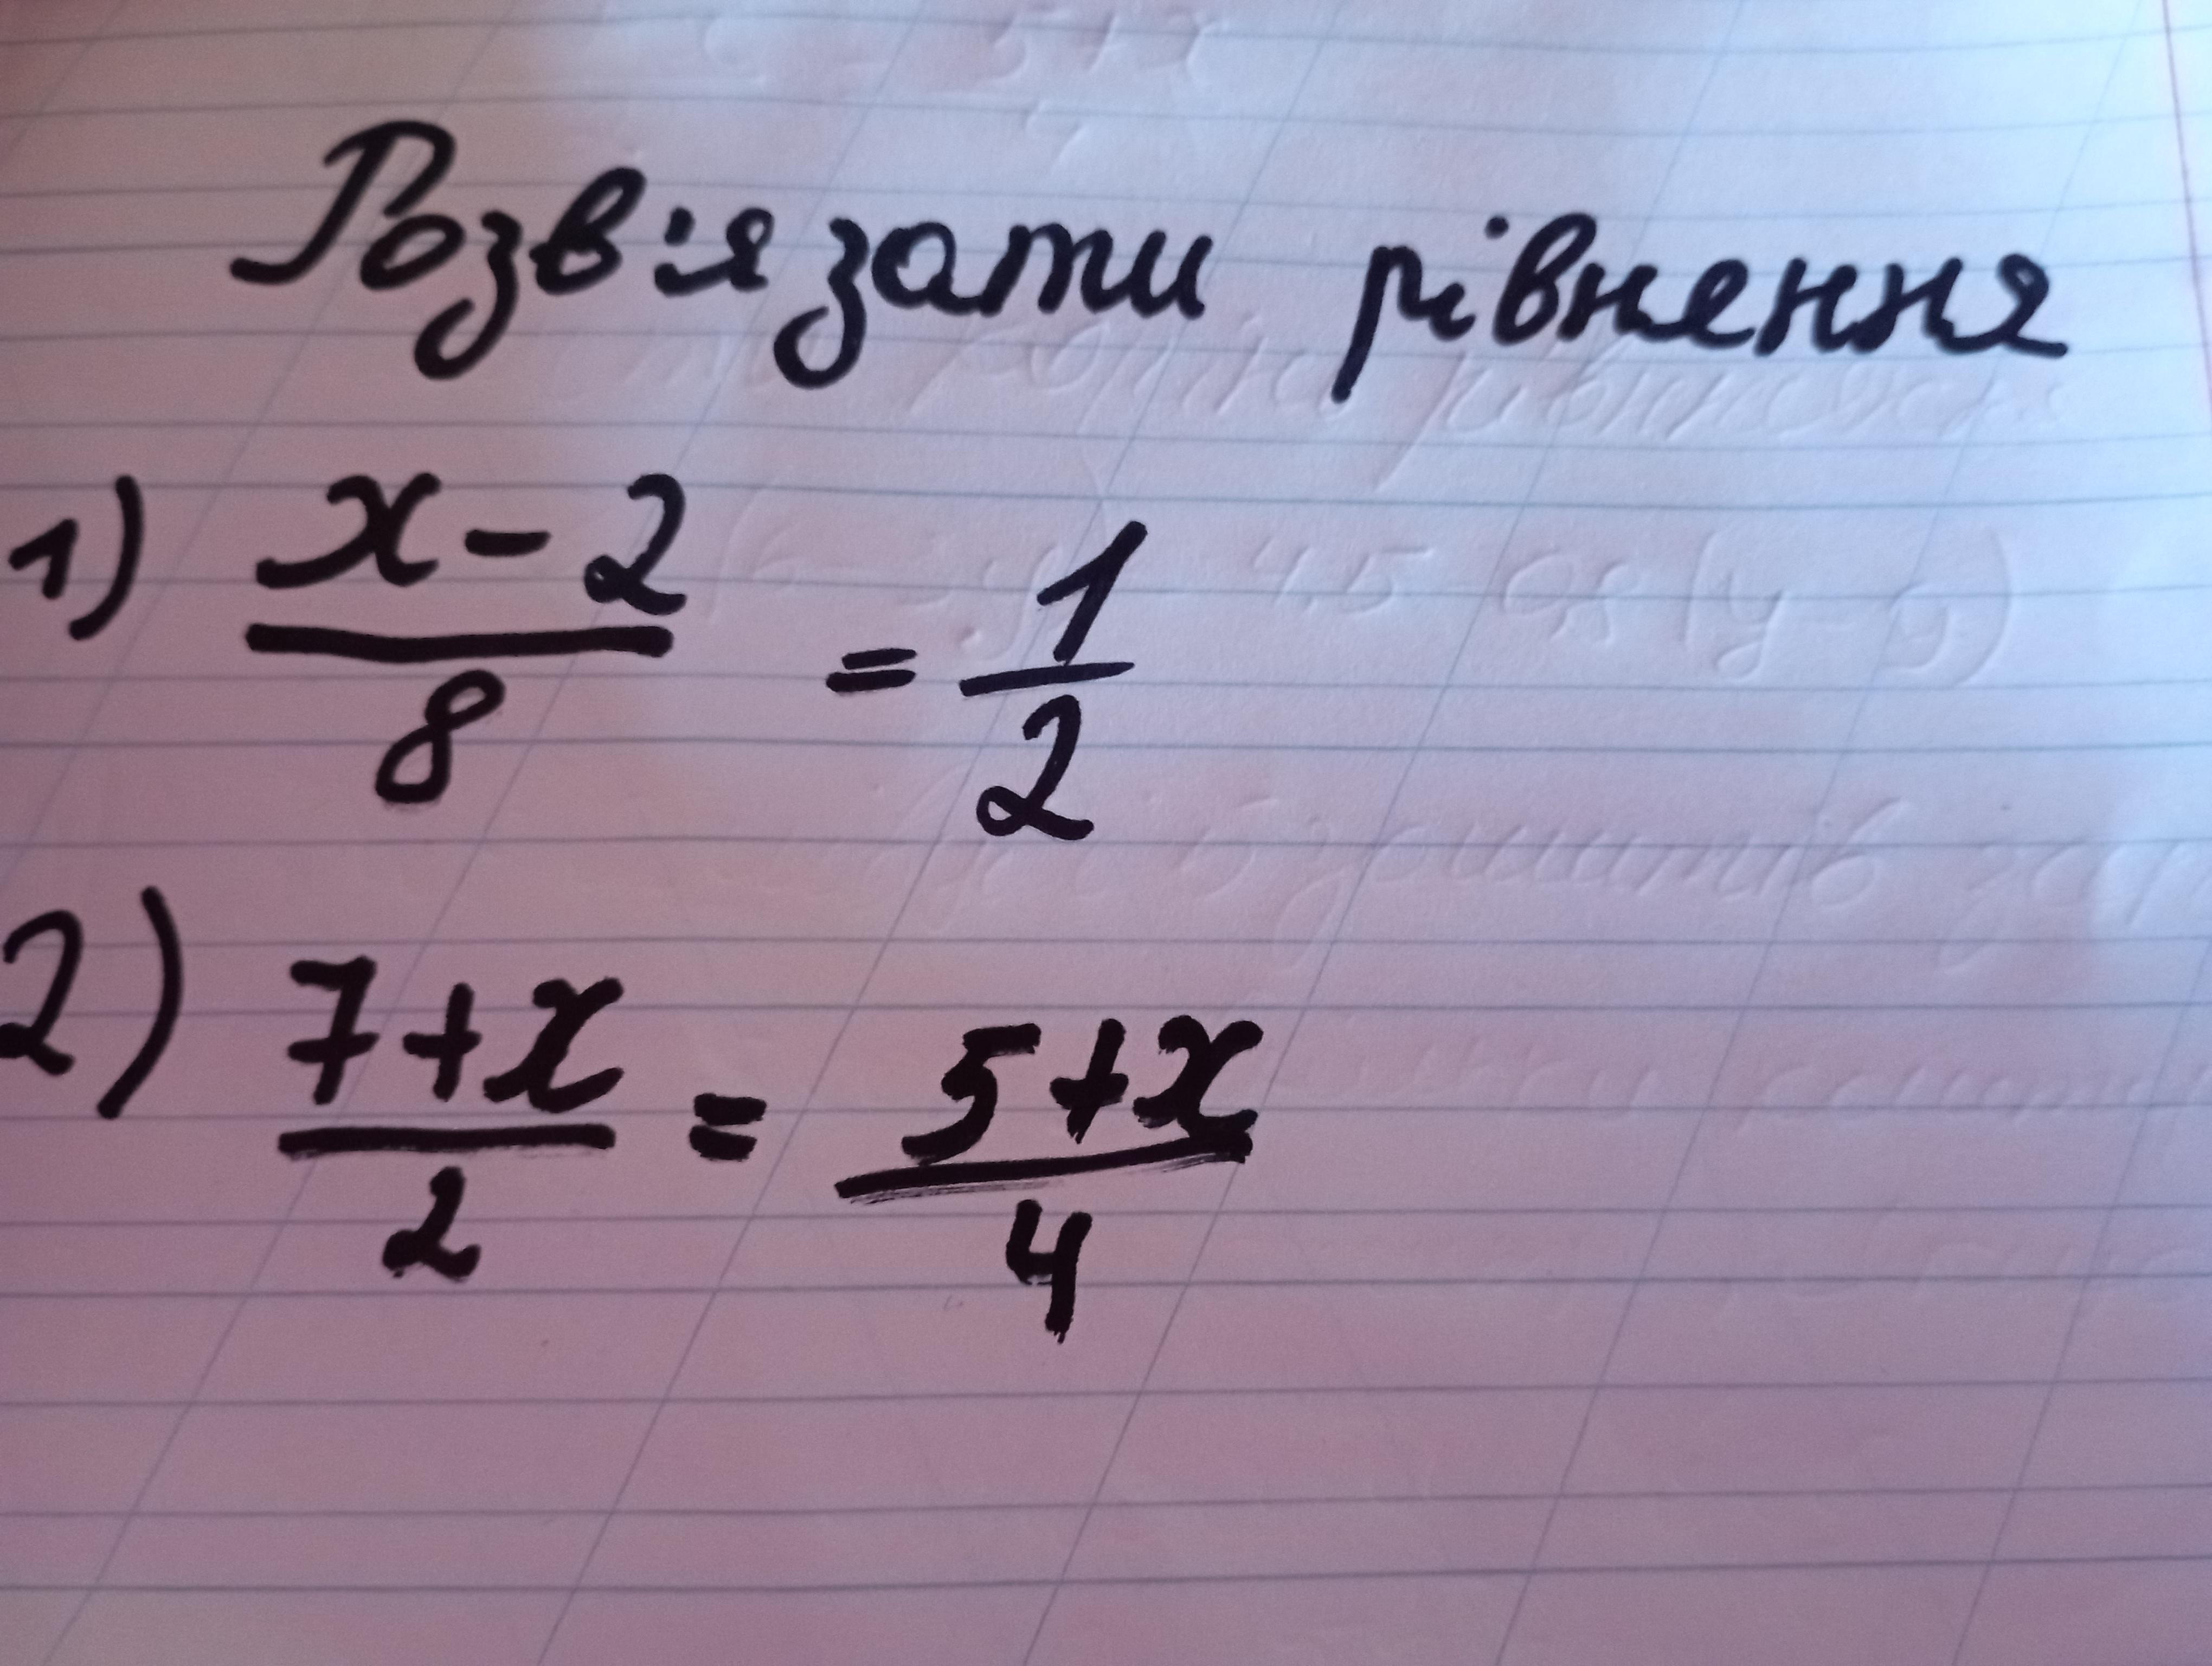 Розв'язати рівняння
1) x-2/8 = 1/2
2) 7+x/2 = 5+x/4